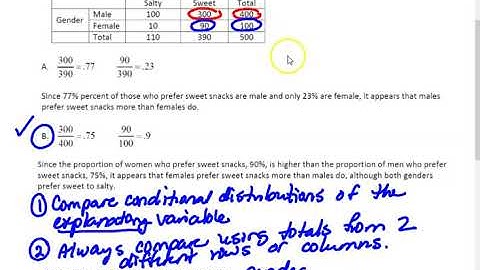 Salty Sweet Total
Gender Male 100 300 400
Female 10 90 100
Total 110 390 500
A. 300/390 = .77 90/390 = .23
Since 77% percent of those who prefer sweet snacks are male and only 23% are female, it appears that males
prefer sweet snacks more than females do.
B. 300/400 = .75 90/100 = .9
Since the proportion of women who prefer sweet snacks, 90%, is higher than the proportion of men who prefer
sweet snacks, 75%, it appears that females prefer sweet snacks more than males do, although both genders
prefer sweet to salty.
① Compare conditional distributions of the
explanatory variable
② Always compare using totals from 2
different rows or columns.